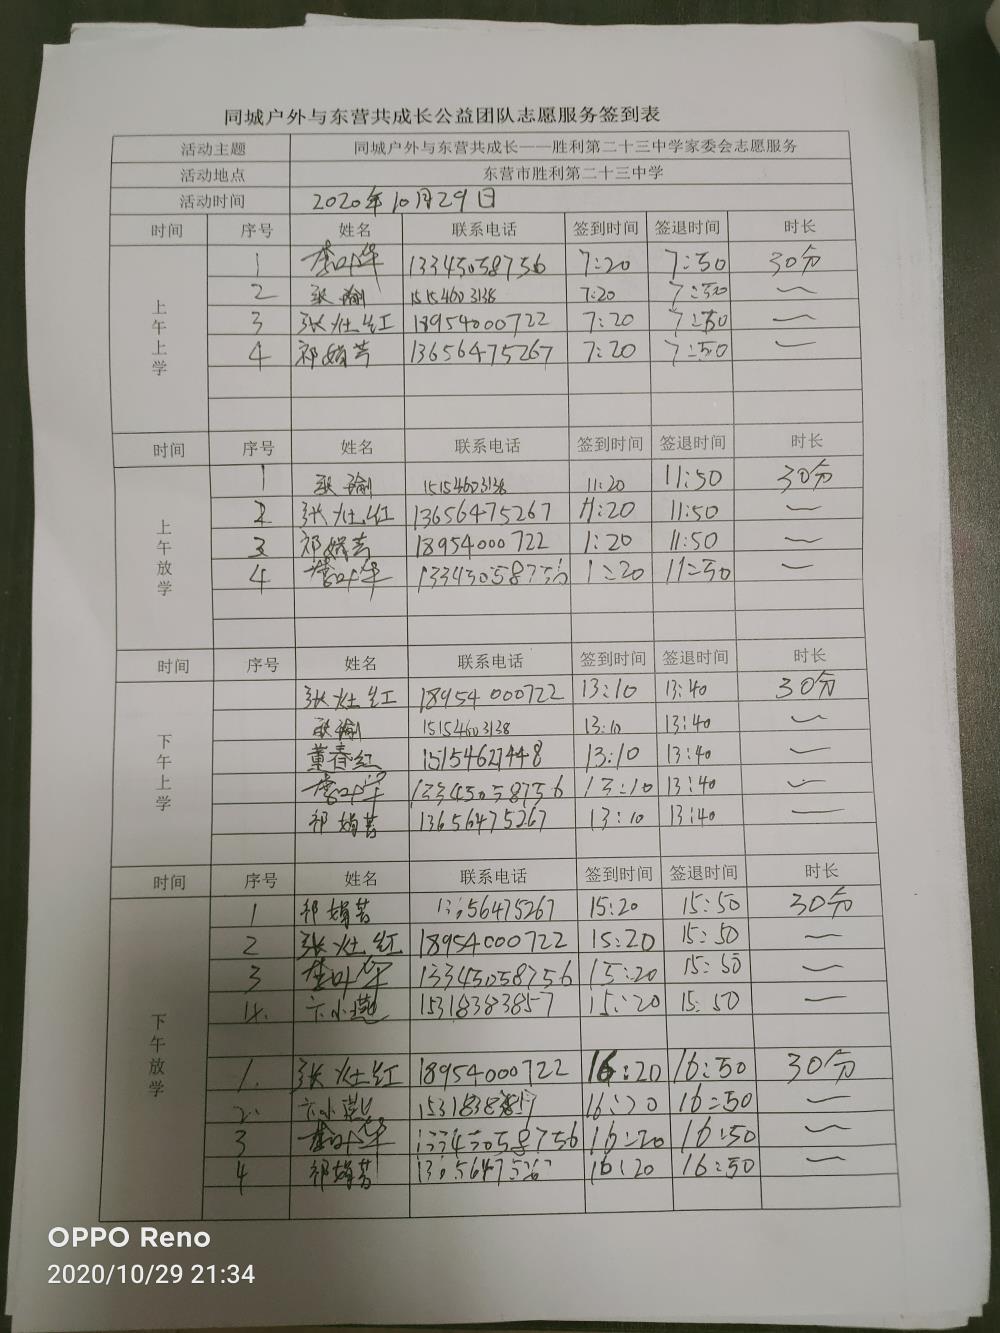 同城户外与东营共成长公益团队志愿服务签到表
活动主题 同城户外与东营共成长——胜利第二十三中学家委会志愿服务
活动地点 东营市胜利第二十三中学
活动时间 2020年10月29日
时间 序号 姓名 联系电话 签到时间 签退时间 时长
上午上学
1 13345058756 7:20 7:50 30分
2 15154603138 7:20 7:50 〜
3 张灶红 18954000722 7:20 7:50 〜
4 祁娟芳 13656475267 7:20 7:50 〜
时间 序号 姓名 联系电话 签到时间 签退时间 时长
上午放学
1 15154603138 11:20 11:50 30分
2 张灶红 13656475267 11:20 11:50 〜
3 祁娟芳 18954000722 1:20 11:50 〜
4 13345058756 1:20 11:50 〜
时间 序号 姓名 联系电话 签到时间 签退时间 时长
下午上学
张灶红 18954000722 13:10 13:40 30分
15154603138 13:10 13:40 〜
董春红 15154627448 13:10 13:40 〜
13345058756 13:10 13:40 〜
祁娟芳 13656475267 13:10 13:40 〜
时间 序号 姓名 联系电话 签到时间 签退时间 时长
下午放学
1 祁娟芳 13656475267 15:20 15:50 30分
2 张灶红 18954000722 15:20 15:50 〜
3 13345058756 15:20 15:50 〜
4. 卞小莲 15318383857 15:20 15:50 〜
1. 张灶红 18954000722 16:20 16:50 30分
2. 卞小莲 16:20 16:50 〜
3 13345058756 16:20 16:50 〜
4 祁娟芳 16:20 16:50 〜
OPPO Reno
2020/10/29 21:34